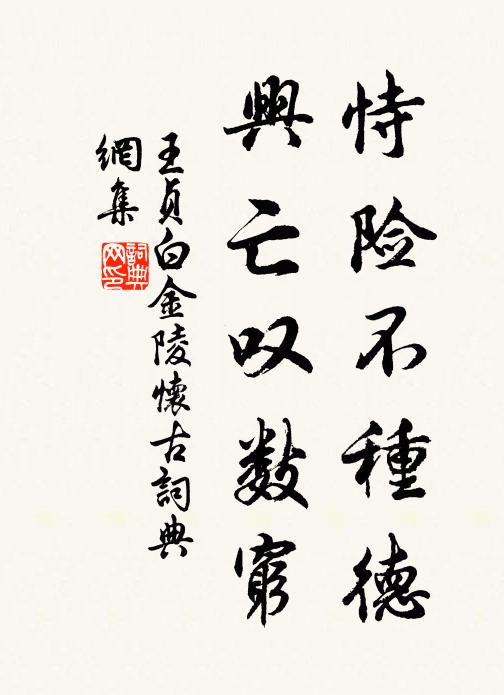 恃险不種德
興亡叹数窮
王貞白金陵懷古詞典
網集
詞典网印